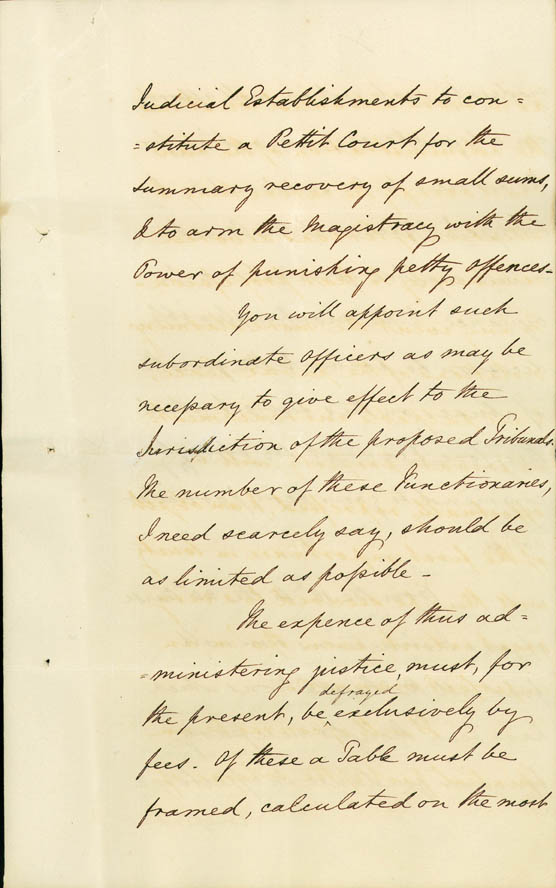 Judicial Establishments to con=
=stitute a Pettit Court for the
summary recovery of small sums,
& to arm the Magistracy with the
Power of punishing petty offences-
You will appoint such
subordinate officers as may be
necessary to give effect to the
Jurisdiction of the proposed Tribunals.
The number of these Functionaries,
I need scarcely say, should be
as limited as possible -
The expence of thus ad=
=ministering justice, must, for
the present, be defrayed exclusively by
fees. Of these a Table must be
framed, calculated on the most